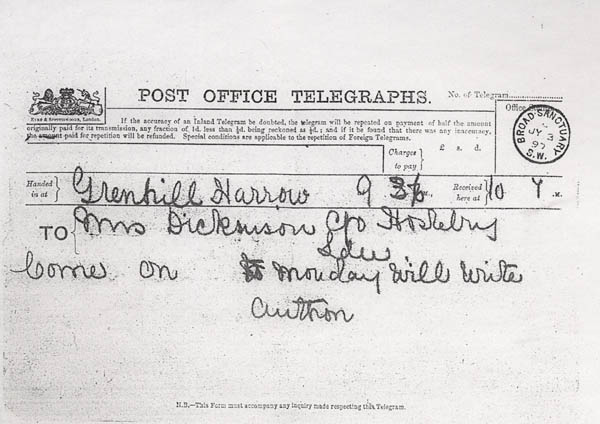 POST OFFICE TELEGRAPHS.
No. of Telegram
If the accuracy of an Inland Telegram be doubted, the telegram will be repeated on payment of half the amount
originally paid for its transmission, any fraction of 1d. less than ½d. being reckoned as ½d.; and if it be found that there was any inaccuracy,
the amount paid for repetition will be refunded. Special conditions are applicable to the repetition of Foreign Telegrams.
Office
BROAD SANCTUARY
JY 3
97
S.W.
Charges
to pay
£ s. d.
Handed
in at
Grenhill Harrow 9
M.,
Received
here at
10 Y .M.
TO
Mrs Dickinson C/o
Come on Monday Will Write
N.B.—This Form must accompany any inquiry made respecting this Telegram.